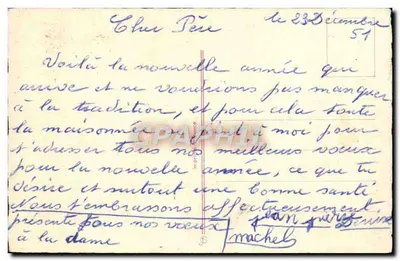 le 23 Décembre
51
Cher Père
Voilà la nouvelle année qui
arrive et ne voudrions pas manquer
à la tradition, et pour cela toute
la maisonnée se joint à moi pour
t'adresser tous nos meilleurs voeux
pour la nouvelle année, ce que tu
désire et surtout une bonne santé
Nous t'embrassons affectueusement
présente tous nos voeux
à la dame
jean pierre Denise
michel